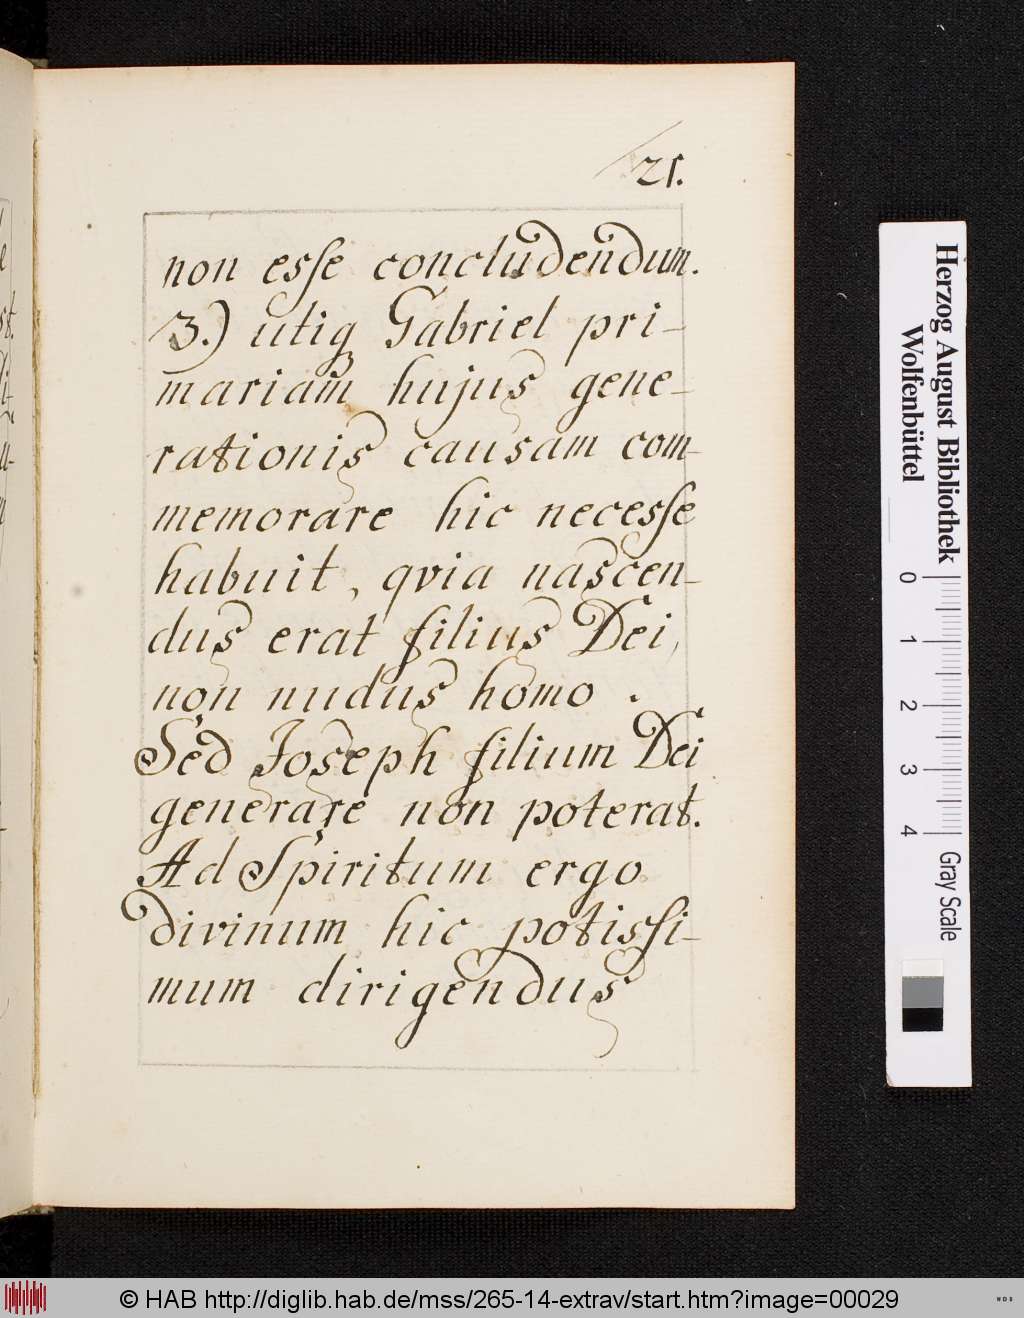 21.
non esse concludendum.
3.) utiq Gabriel pri-
mariam hujus gene-
rationis causam com-
memorare hic necesse
habuit, qvia nascen-
dus erat filius Dei,
non nudus homo.
Sed Joseph filium Dei
generare non poterat.
Ad Spiritum ergo
divinum hic potissi-
mum dirigendus
Herzog August Bibliothek
Wolfenbüttel
0 1 2 3 4
Gray Scale
© HAB http://diglib.hab.de/mss/265-14-extrav/start.htm?image=00029